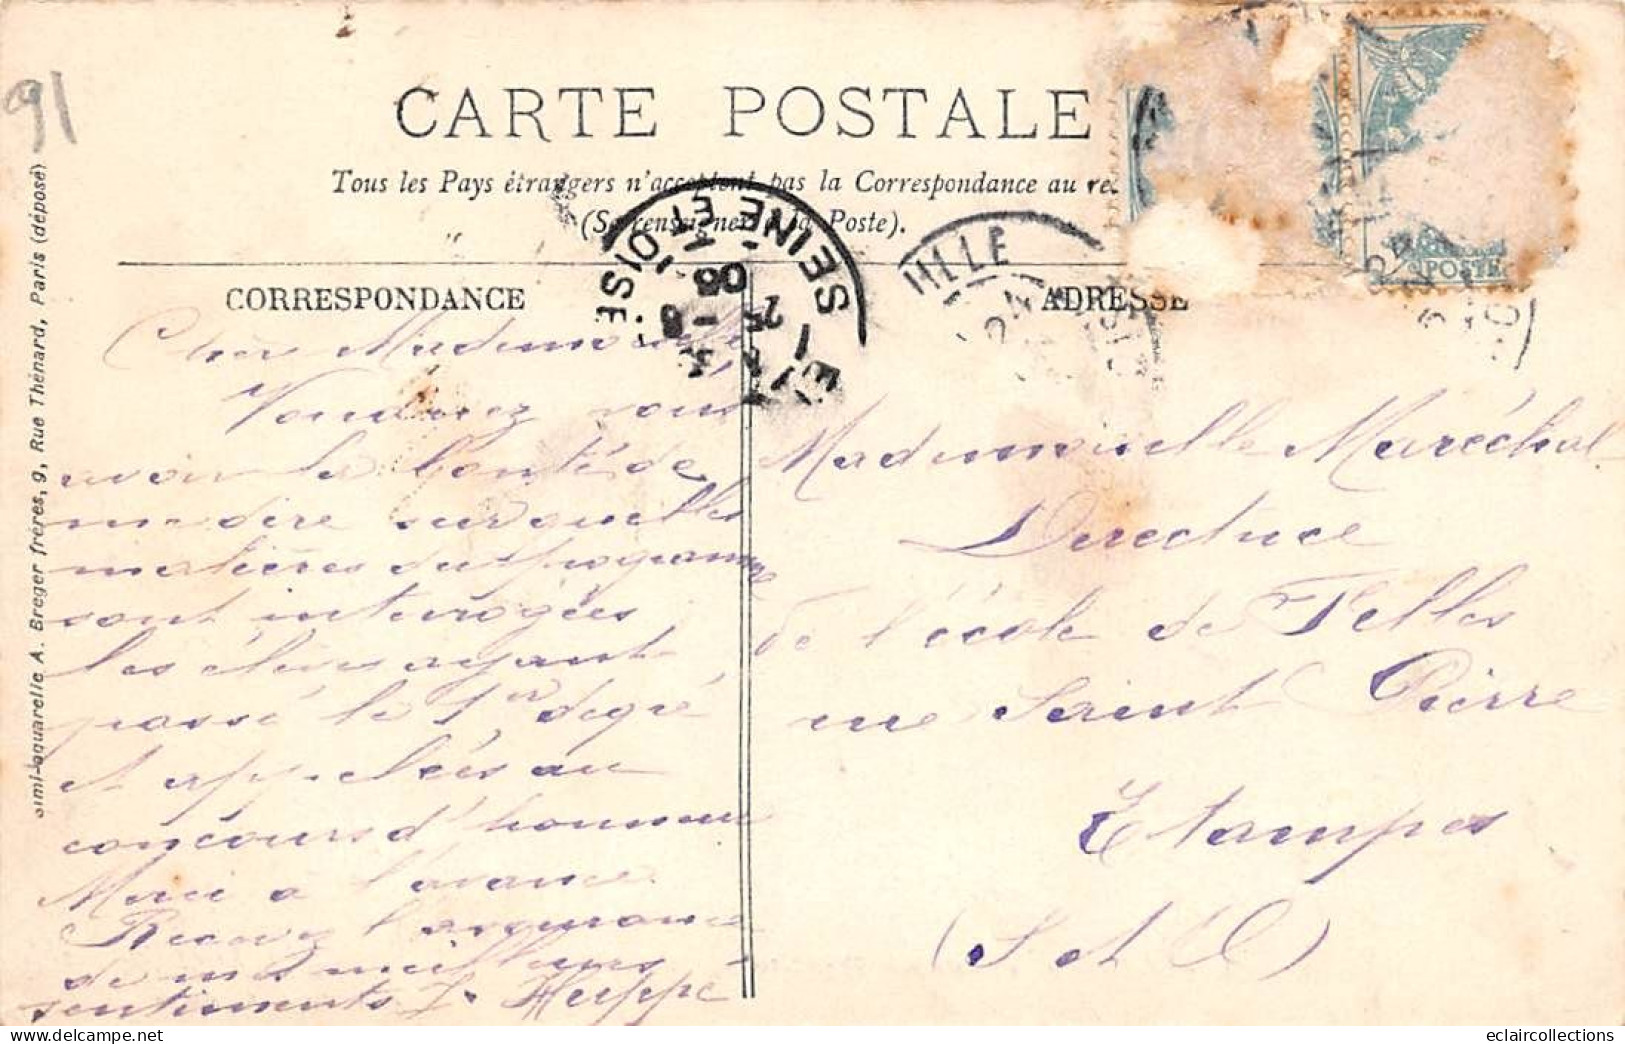 91
CARTE POSTALE
Tous les Pays étrangers n'acceptent pas la Correspondance au
(Se renseigner à la Poste).
CORRESPONDANCE
ADRESSE
SEINE ET OISE
POSTE
Simi-aquarelle A. Breger frères, 9, Rue Thénard, Paris (déposé)
Chère Mademoiselle
Voudriez vous
avoir la bonté de
me dire sur quelles
matières du programme
sont interrogées
les élèves ayant
passé le 1er degré
et appelées au
concours d'honneur
Merci à l'avance
Recevez l'assurance
de mes meilleurs
sentiments J. Huppe
Mademoiselle Maréchal
Directrice
de l'école de Filles
rue Saint Pierre
Etampes
(S et O)
eclaircollections